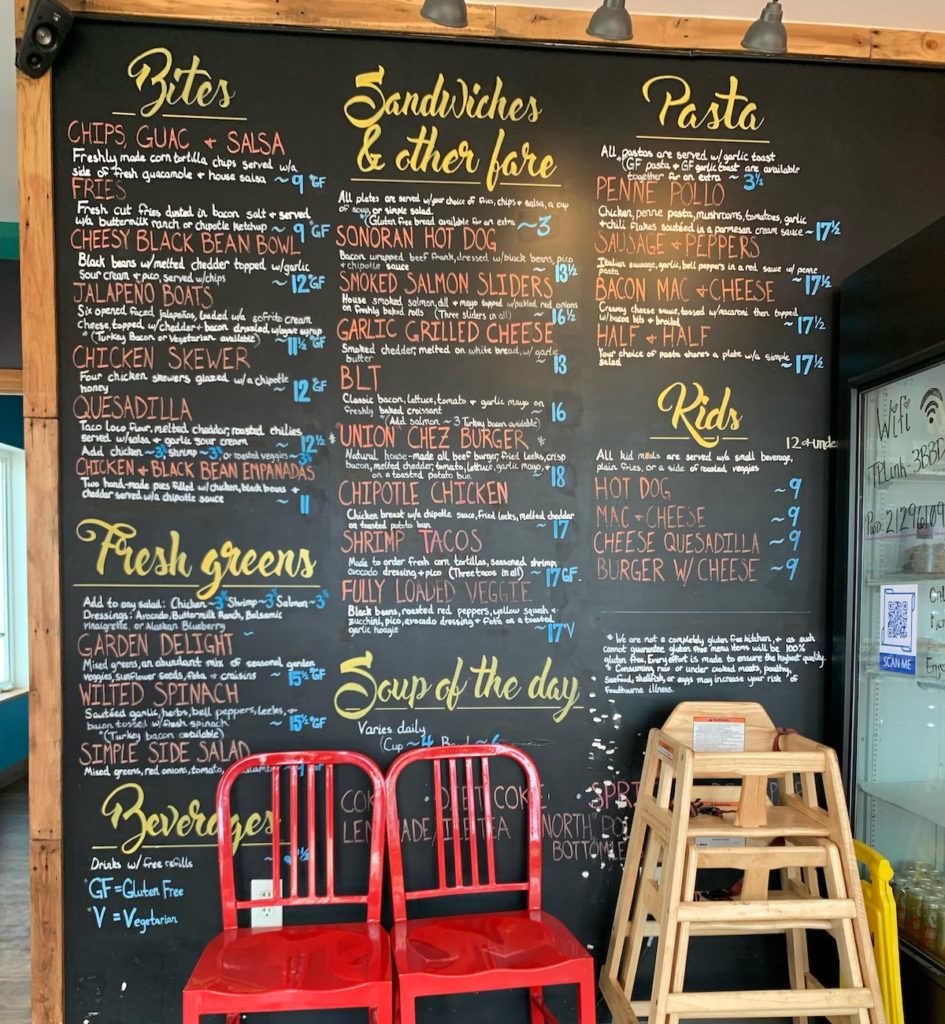 Bites
CHIPS, GUAC + SALSA
Freshly made corn tortilla chips served w/a
side of fresh guacamole + house salsa ~9 GF
FRIES
Fresh cut fries dusted in bacon salt + served
w/a buttermilk ranch or chipotle ketchup ~9 GF
CHEESY BLACK BEAN BOWL
Black beans w/melted chedder topped w/garlic
sour cream + pico, served w/chips ~12 GF
JALAPEÑO BOATS
Six opened faced jalapeños, loaded w/a sofrito cream
cheese, topped w/chedder + bacon drizzled w/agave syrup
*(Turkey Bacon or Vegetarian available) ~11½ GF
CHICKEN SKEWER
Four chicken skewers glazed w/a chipotle
honey ~12 GF
QUESADILLA
Taco loco flour, melted chedder, roasted chilies
served w/salsa + garlic sour cream ~12½
Add chicken ~3½ shrimp ~3½ or roasted veggies ~3½
CHICKEN + BLACK BEAN EMPANADAS
Two hand-made pies filled w/chicken, black beans +
chedder served w/a chipotle sauce ~11
Fresh greens
Add to any salad: Chicken ~3½ Shrimp ~3½ Salmon ~3½
Dressings: Avocado, Buttermilk Ranch, Balsamic
Vinaigrette, or Alaskan Blueberry
GARDEN DELIGHT
Mixed greens, an abundant mix of seasonal garden
veggies, sunflower seeds, feta + craisins ~15½ GF
WILTED SPINACH
Sautéed garlic, herbs, bell peppers, leeks, +
bacon tossed w/fresh spinach ~15½ GF
*(Turkey bacon available)
SIMPLE SIDE SALAD
Mixed greens, red onions, tomato,
Beverages
Drinks w/free refills
*GF = Gluten Free
*V = Vegetarian
Sandwiches
& other fare
All plates are served w/your choice of fries, chips + salsa, a cup
of soup or simple salad.
*(Gluten free bread available for an extra ~3
SONORAN HOT DOG
Bacon wrapped beef frank, dressed w/black beans, pico
+ chipotle sauce ~13½
SMOKED SALMON SLIDERS
House smoked salmon, dill + mayo topped w/pickled red onions
on freshly baked rolls (Three sliders in all) ~16½
GARLIC GRILLED CHEESE
Smoked chedder, melted on white bread, w/garlic
butter ~13
BLT
Classic bacon, lettuce, tomato + garlic mayo on
freshly baked croissant ~16
*(Add salmon ~3 Turkey bacon available)
*UNION CHEZ BURGER*
Natural house-made all beef burger, fried leeks, crisp
bacon, melted chedder, tomato, lettuce, garlic mayo,
on a toasted potato bun ~18
CHIPOTLE CHICKEN
Chicken breast w/a chipotle sauce, fried leeks, melted chedder
on toasted potato bun ~17
SHRIMP TACOS
Made to order fresh corn tortillas, seasoned shrimp,
avocado dressing + pico (Three tacos in all) ~17 GF
FULLY LOADED VEGGIE
Black beans, roasted red peppers, yellow squash +
zucchini, pico, avocado dressing + feta on a toasted
garlic hoagie ~17 V
Soup of the day
Varies daily
(Cup ~4 Bowl ~6
Pasta
All pastas are served w/garlic toast
*(GF pasta + GF garlic toast are available
together for an extra ~3½
PENNE POLLO
Chicken, penne pasta, mushrooms, tomatoes, garlic
+ chili flakes sautéed in a parmesan cream sauce ~17½
SAUSAGE + PEPPERS
Italian sausage, garlic, bell peppers in a red sauce w/penne
pasta ~17½
BACON MAC + CHEESE
Creamy cheese sauce, tossed w/macaroni then topped
w/bacon bits + broiled ~17½
HALF + HALF
Your choice of pasta shares a plate w/a simple
salad ~17½
Kids
12 + under
All kid meals are served w/a small beverage,
plain fries, or a side of roasted veggies
HOT DOG ~9
MAC + CHEESE ~9
CHEESE QUESADILLA ~9
BURGER W/CHEESE ~9
*We are not a completely gluten free kitchen, + as such
cannot guarantee gluten free menu items will be 100%
gluten free. Every effort is made to ensure the highest quality.
*Consuming raw or under cooked meats, poultry,
seafood, shellfish, or eggs may increase your risk of
foodbourne illness.
COKE
TEA
NORTH
Wifi
TPLink
SCAN ME